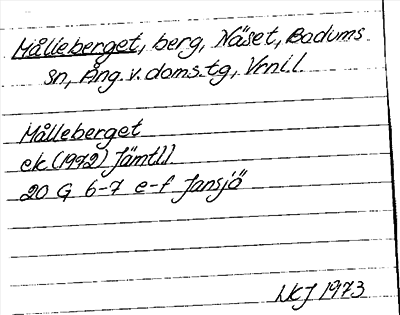 Målleberget, berg, Näset, Bodums
sn, Ång. v. doms.tg, Vrnl.l.
Målleberget
ek. (1972) Jämtl l.
20 G 6-7 e-f Jansjö
LKJ 1973